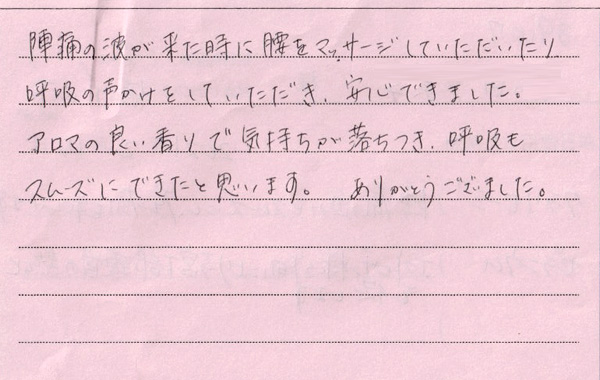 陣痛の波が来た時に腰をマッサージしていただいたり
呼吸の声かけをしていただき、安心できました。
アロマの良い香りで気持ちが落ちつき、呼吸も
スムーズにできたと思います。 ありがとうございました。